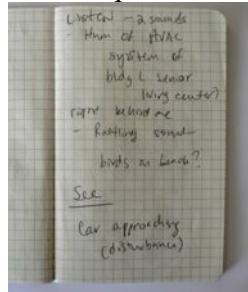 Listen - 2 sounds
- Hum of HVAC
system of
bldg ( senior
living center)
right behind me
- Rustling sound -
birds on bench?
See
Car approaching
(disturbance)